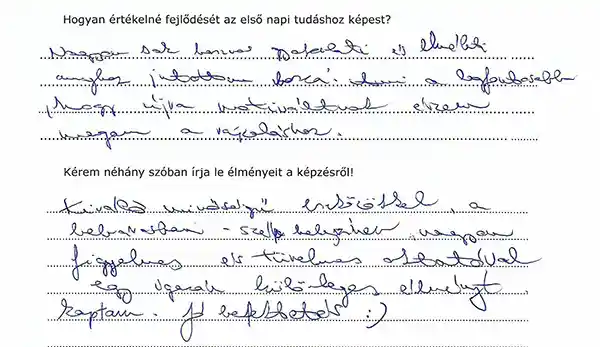 Hogyan értékelné fejlődését az első napi tudáshoz képest?
Nagyon sok hasznos gyakorlati és elméleti
anyghoz jutottam hozzá. Ami a legfontosabb
, hogy újra motiváltnak érzem
magam a rajzoláshoz.
Kérem néhány szóban írja le élményeit a képzésről!
Kiváló minőségű eszközökkel, a
belvárosban - szép helyszínen, nagyon
figyelmes és türelmes oktatóval
egy igazán különleges élményt
kaptam. Jó befektetés :)